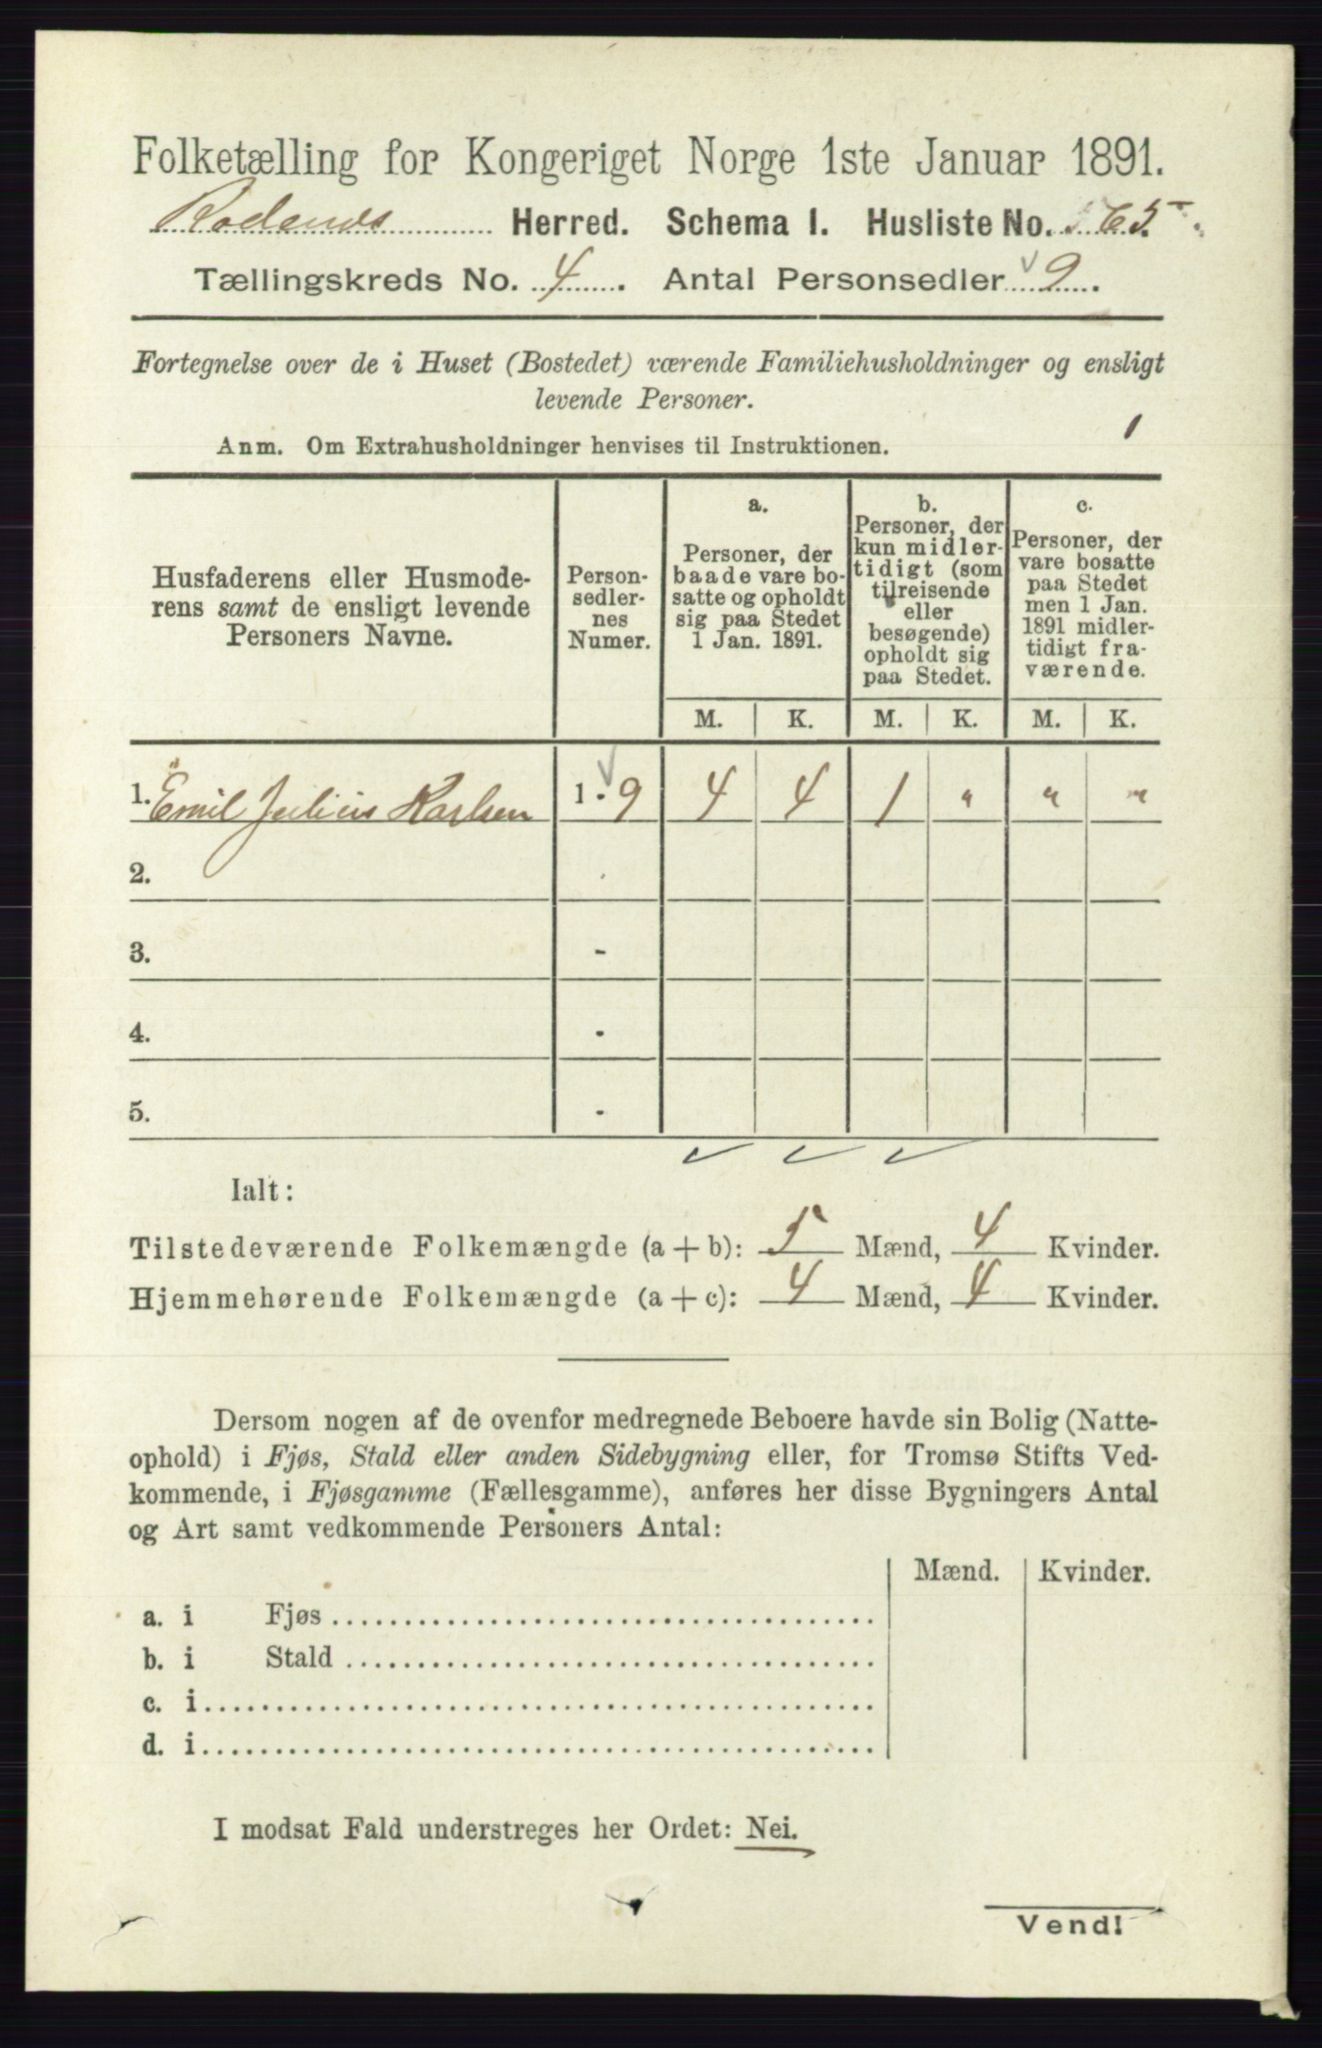 Folketælling for Kongeriget Norge 1ste Januar 1891.
Rodenæs Herred. Schema I. Husliste No. 65.
Tællingskreds No. 4. Antal Personsedler 9.
Fortegnelse over de i Huset (Bostedet) værende Familiehusholdninger og ensligt
levende Personer.
1
Anm. Om Extrahusholdninger henvises til Instruktionen.
Husfaderens eller Husmode-
rens samt de ensligt levende
Personers Navne.
Person-
sedler-
nes
Numer.
a.
Personer, der
baade vare bo-
satte og opholdt
sig paa Stedet
1 Jan. 1891.
b.
Personer, der
kun midler-
tidigt (som
tilreisende
eller
besøgende)
opholdt sig
paa Stedet.
c.
Personer, der
vare bosatte
paa Stedet
men 1 Jan.
1891 midler-
tidigt fra-
værende.
M. K. M. K. M. K.
1. Emil Julius Karlsen 1 - 9 4 4 1 " " "
2.
3. -
4. -
5. -
Ialt:
Tilstedeværende Folkemængde (a + b): 5 Mænd, 4 Kvinder.
Hjemmehørende Folkemængde (a + c): 4 Mænd, 4 Kvinder.
Dersom nogen af de ovenfor medregnede Beboere havde sin Bolig (Natte-
ophold) i Fjøs, Stald eller anden Sidebygning eller, for Tromsø Stifts Ved-
kommende, i Fjøsgamme (Fællesgamme), anføres her disse Bygningers Antal
og Art samt vedkommende Personers Antal:
Mænd. Kvinder.
a. i Fjøs
b. i Stald
c. i
d. i
I modsat Fald understreges her Ordet: Nei.
Vend!